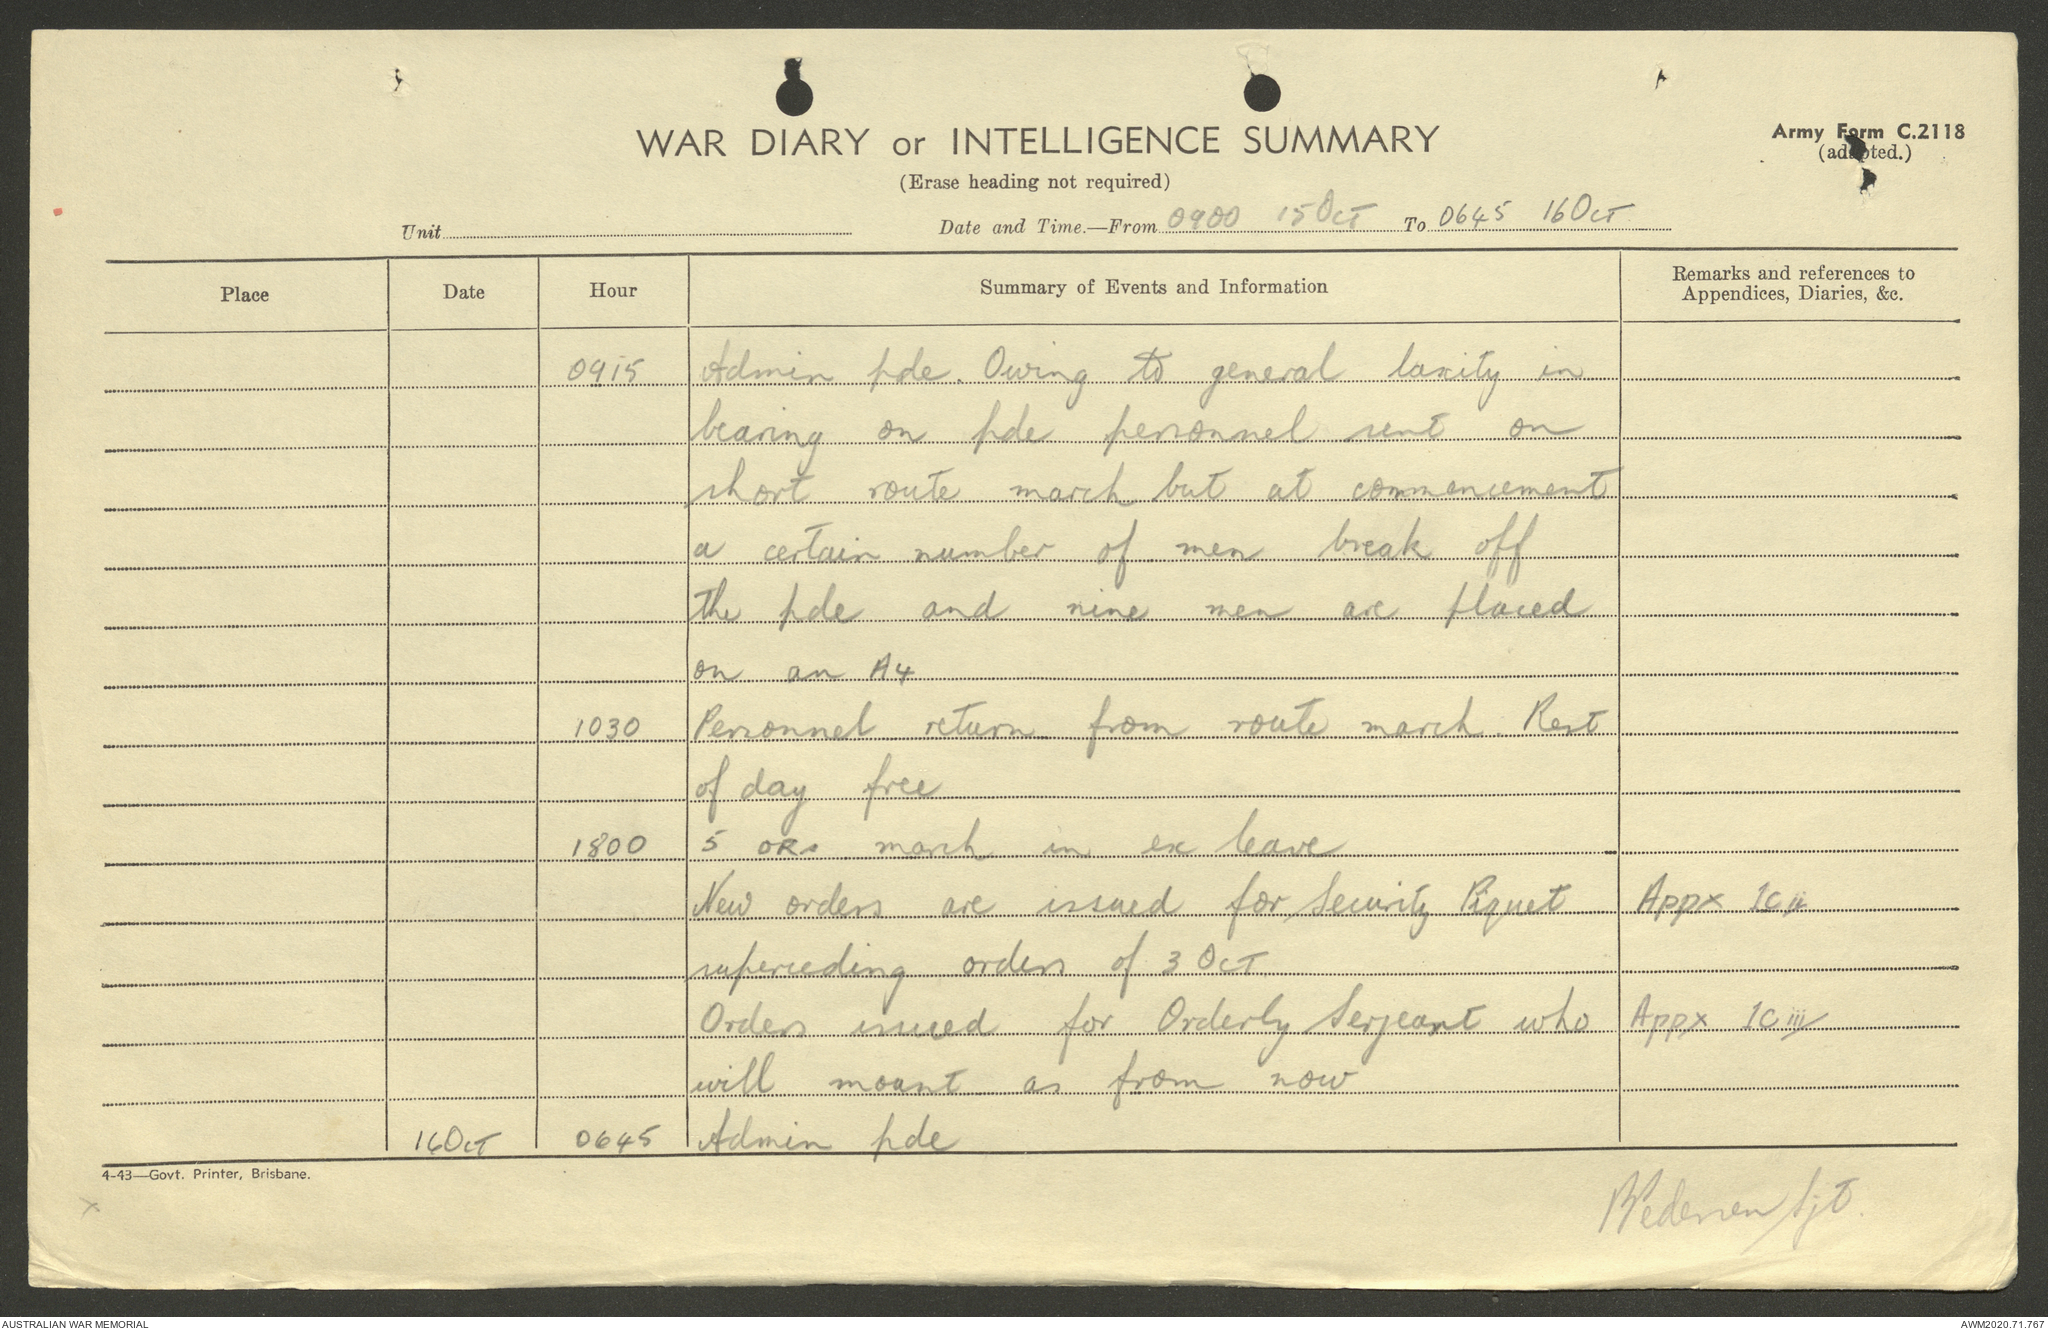 WAR DIARY or INTELLIGENCE SUMMARY
Army Form C.2118
(adapted.)
(Erase heading not required)
Unit
Date and Time.—From 0900 15 Oct To 0645 16 Oct
Place Date Hour Summary of Events and Information Remarks and references to Appendices, Diaries, &c.
0915 Admin pde. Owing to general laxity in
bearing on pde personnel sent on
short route march but at commencement
a certain number of men break off
the pde and nine men are placed
on an A4
1030 Personnel return from route march. Rest
of day free
1800 5 ORs march in ex leave
New orders are issued for Security Piquet Appx 1C ii
superceding orders of 3 Oct
Orders issued for Orderly Serjeant who Appx 1C iii
will mount as from now
16 Oct 0645 Admin pde
4-43—Govt. Printer, Brisbane.
Pedersen Sjt.
AUSTRALIAN WAR MEMORIAL
AWM2020.71.767